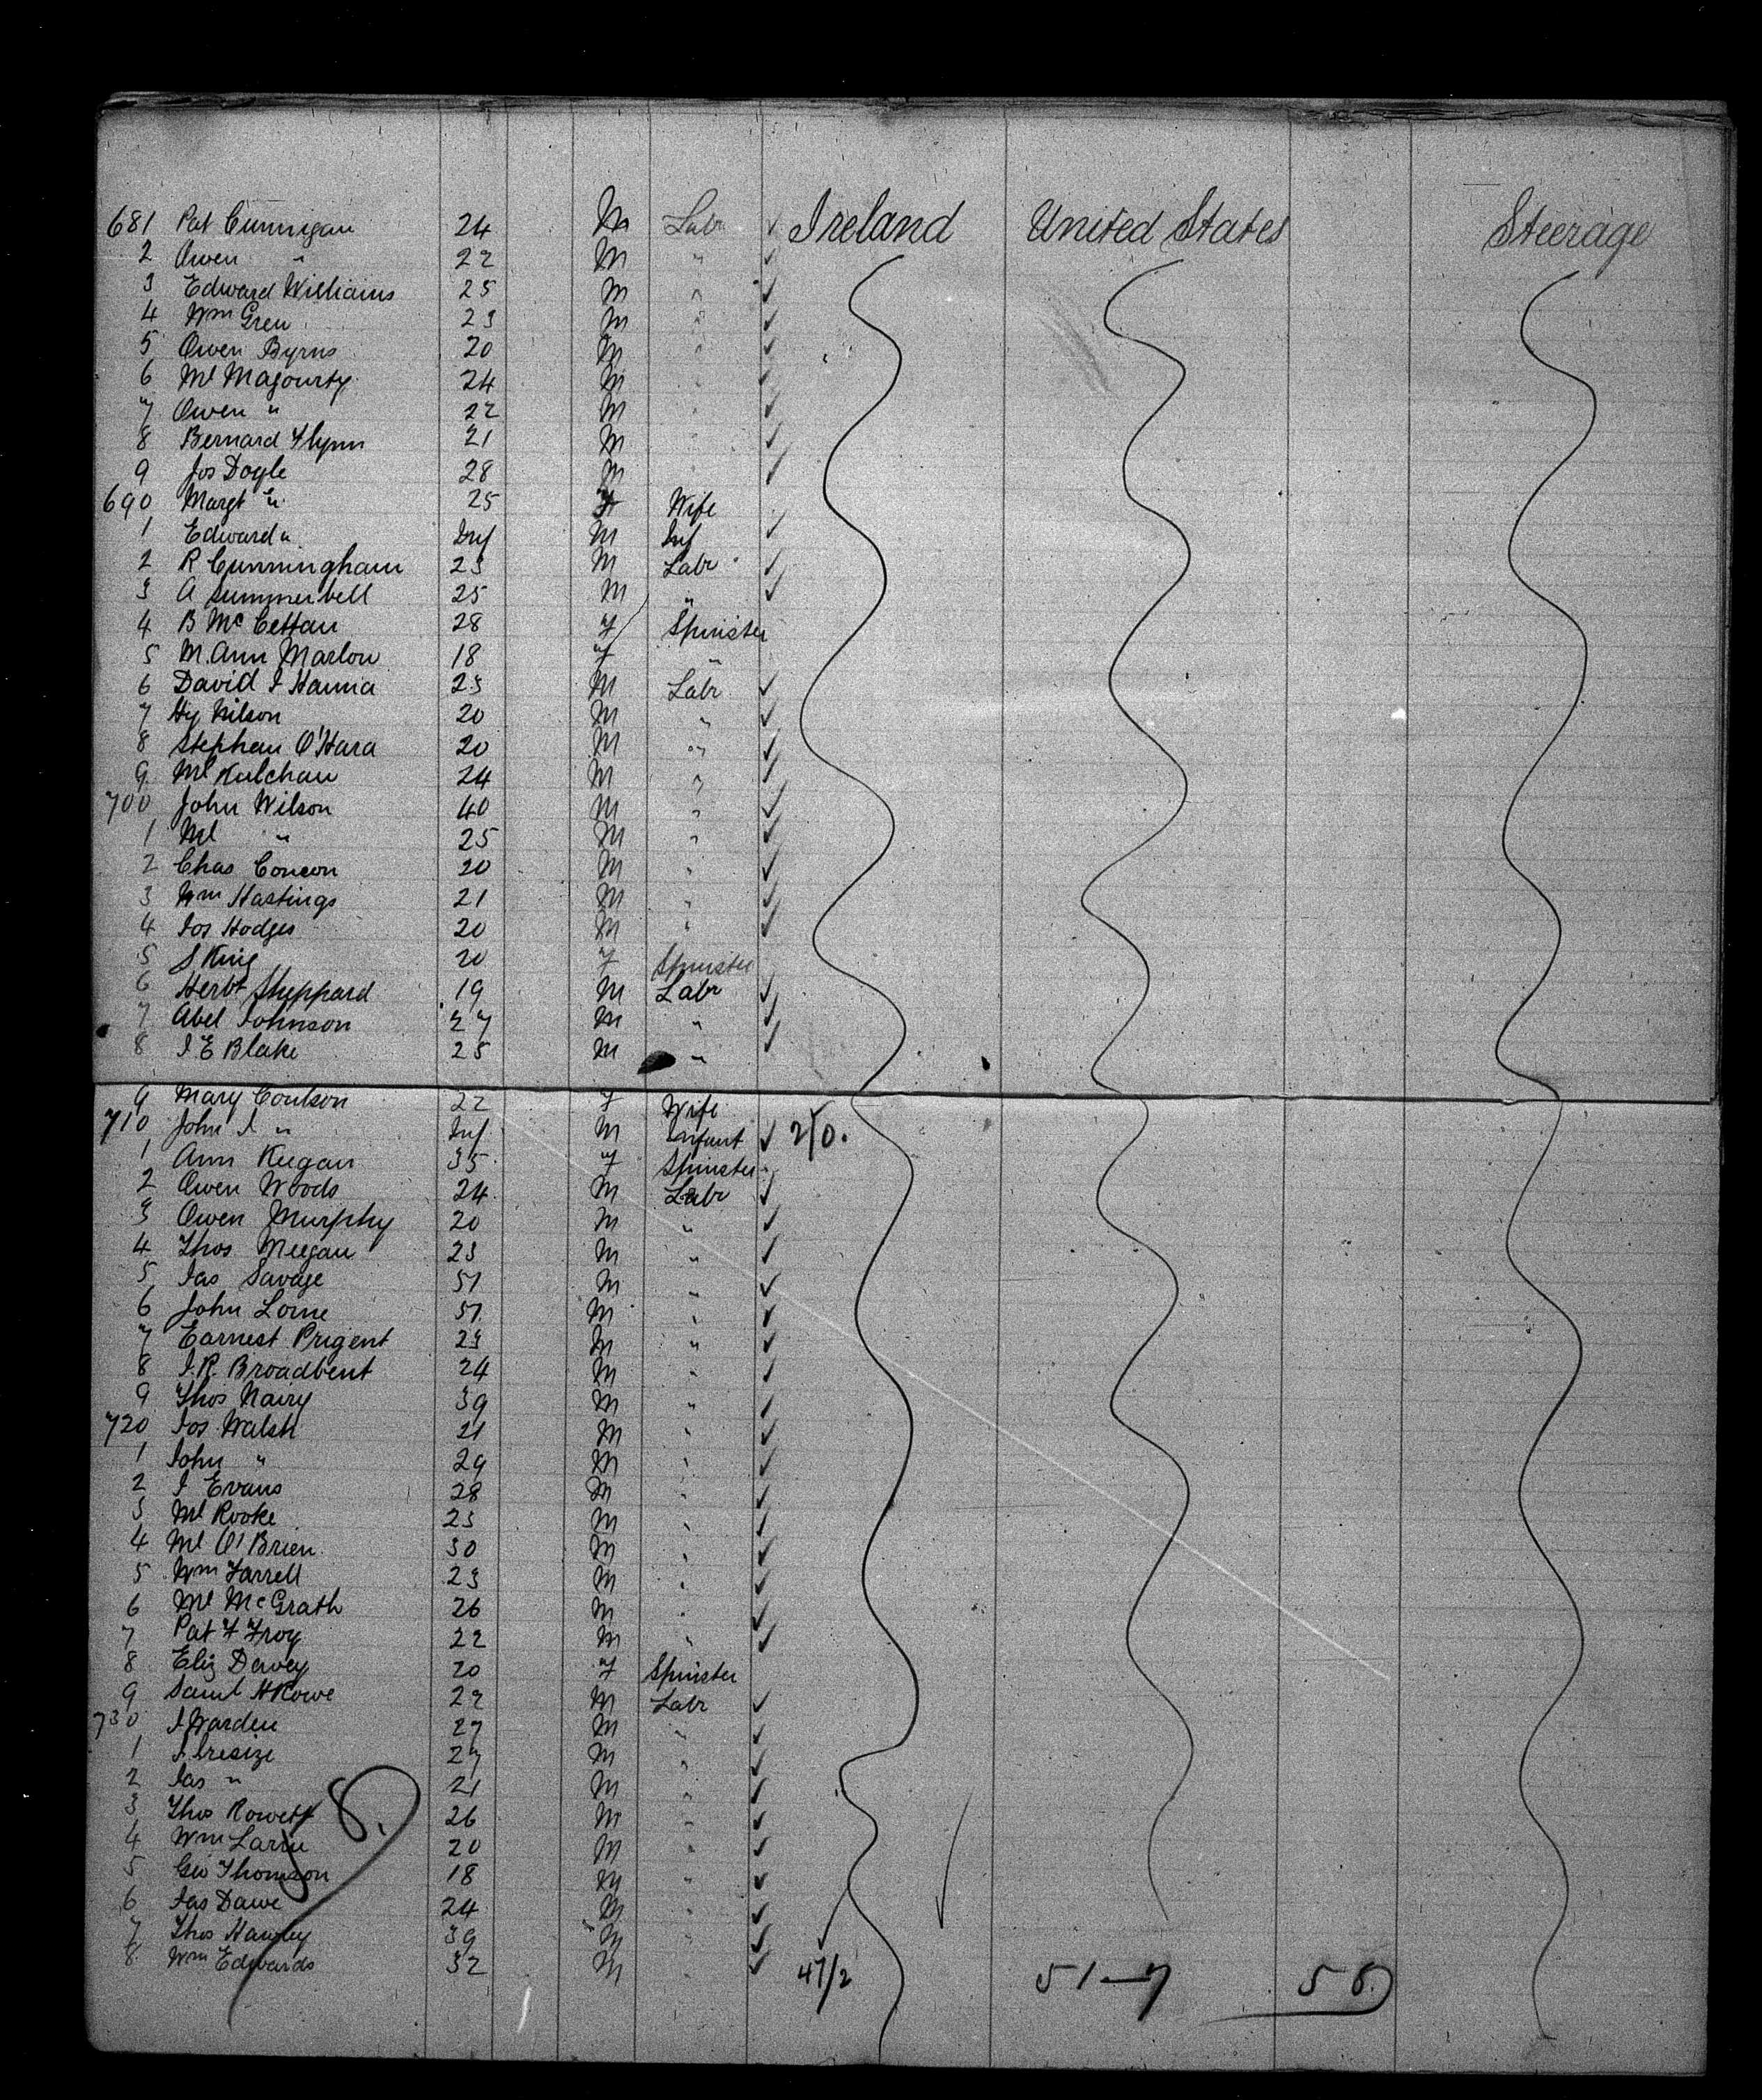 681 Pat Cunnigan 24 M Labr Ireland United States Steerage
2 Owen " 22 M "
3 Edward Williams 25 M "
4 Wm Gren 23 M "
5 Owen Byrns 20 M "
6 Ml Magourty 24 M "
7 Owen " 22 M "
8 Bernard Flynn 21 M "
9 Jos Doyle 28 M
690 Margt " 25 F Wife
1 Edward " Inf M Inf
2 R Cunningham 23 M Labr
3 A Summerbell 25 M "
4 B Mc 28 F Spinster
5 M. Ann Marlow 18 F "
6 David J Hanna 23 M Labr
7 Hy Nilson 20 M "
8 Stephen O'Hara 20 M "
9 Ml 24 M "
700 John Wilson 40 M "
1 Ml " 25 M "
2 Chas Concon 20 M "
3 Wm Hastings 21 M "
4 Jos Hodges 20 M "
5 S King 20 F Spinster
6 Herbt Sheppard 19 M Labr
7 Abel Johnson 27 M "
8 J E Blake 25 M "
9 Mary Coulson 22 F Wife
710 John J " Inf M Infant 2/0.
1 Ann Keegan 35 F Spinster
2 Owen Woods 24 M Labr
3 Owen Murphy 20 M "
4 Thos Meegan 23 M "
5 Jas Savage 51 M "
6 John Lorne 51 M "
7 Earnest Prigent 23 M "
8 J. R. Broadbent 24 M "
9 Thos Nairy 39 M "
720 Jos Walsh 21 M "
1 John " 29 M "
2 J Evans 28 M "
3 Ml Rooke 23 M "
4 Ml O'Brien 30 M "
5 Wm Farrell 23 M "
6 Ml McGrath 26 M "
7 Pat F Froy 22 M "
8 Eliz Dewey 20 F Spinster
9 Saml H Rowe 22 M Labr
730 J Warden 27 M "
1 J 27 M "
2 Jas " 21 M "
3 Thos Rowett 26 M "
4 Wm 20 M "
5 Geo Thomson 18 M "
6 Jas Dawe 24 M "
7 Thos Hawley 39 M "
8 Wm Edwards 32 M "
47/2 51—7 58